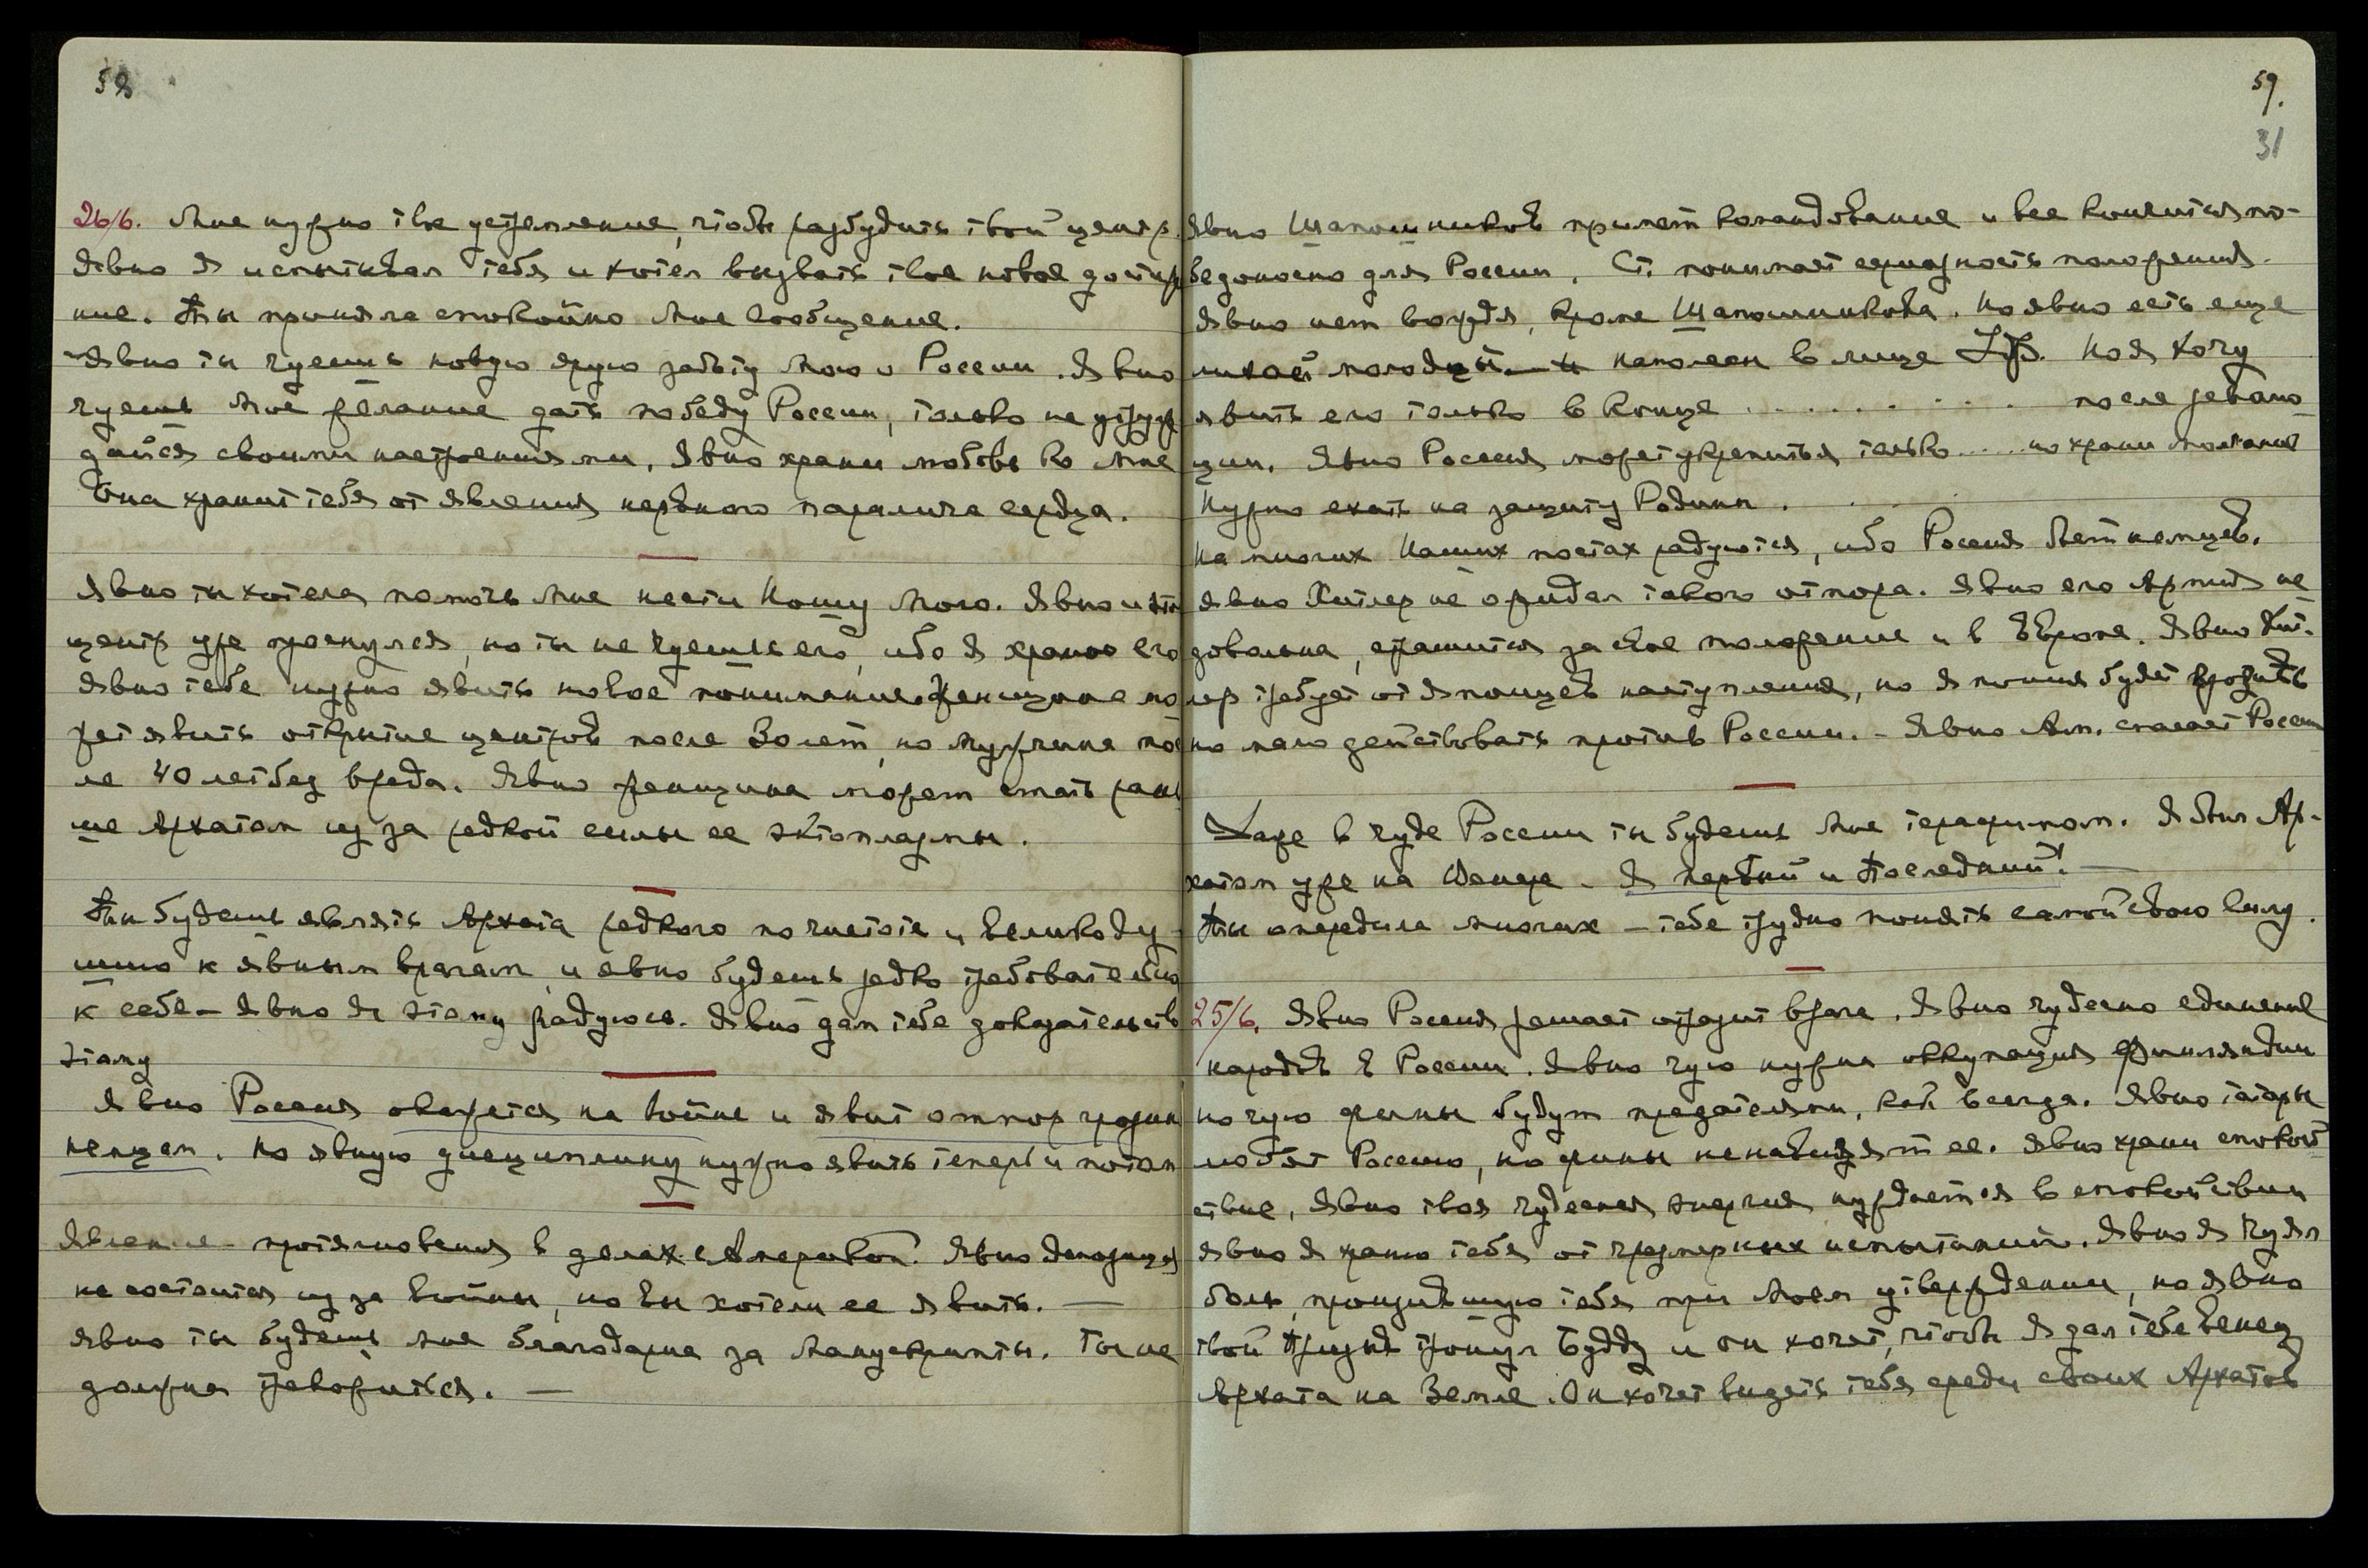 58
26/6. Мне нужно твое устремление, чтобы разбудить твой центр.
Явно Я испытывал тебя и хотел вызвать твое новое достиже
ние. Ты приняла спокойно Мое сообщение.
Явно ты чуешь новую ярую заботу Мою о России. Явно
чуешь Мое желание дать победу России, только не утруж
дайся своими настроениями. Явно храни любовь ко Мне
Она хранит тебя от явления нервного паралича сердца.
Явно ты хотела помочь Мне нести Ношу Мою. Явно и
центр уже проснулся, но ты не чуешь его, ибо Я храню его
Явно тебе нужно явить новое понимание. Женщина мо
жет явить открытие центров после 30 лет, но мужчина пос
ле 40 лет без вреда. Явно женщина может стать рань
ше Архатом из за редкой силы ее эктоплазмы.
Ты будешь являть Архата редкого по чистоте и великоду-
шию к явным врагам и явно будешь редко требовательна
к себе – Явно Я этому радуюсь. Явно дам тебе доказательств
этому
Явно Россия окажется на войне и явит отпор грозный
немцам. Но явную дисциплину нужно явить теперь и потом
Явление протяновения в делах с Америкой. Явно
не состоится из за войны, но вы хотели ее явить. —
Явно ты будешь Мне благодарна за Манускрипты. Ты не
должна тревожиться. —
59.
31
Явно Шапошников примет командование и все кончится по-
бедоносно для России. Ст. понимает серьезность положения.
Явно нет вождя, кроме Шапошникова. Но явно есть еще
молодой наполеон в лице Но Я хочу
явить его только в конце . . . . . . . . . после
Явно Россия может укрепиться только ..... но храни молчание
Нужно ехать на защиту Родины.
На многих Наших постах радуются, ибо Россия бьет немцев.
Явно Хитлер не ожидал такого отпора. Явно его Армия не
довольна, страшится за свое положение и в Европе. Явно Хит-
лер требует от японцев наступления, но Япония будет грозить
но мало действовать против России. – Явно Ам. спасает Россию
Даже в чуде России ты будешь Мне терафимом. Я был Ар-
хатом уже на Венере – Я Первый и Последний! —
Ты опередила многих – тебе трудно понять самой свою силу.
25/6. Явно Россия решает отразит врага. Явно чудесно единение
народов в России. Явно чую нужна оккупация Финляндии
но чую финны будут предателями, как всегда. Явно татары
любят Россию, но финны ненавидят ее. Явно храни спокой
ствие, Явно твоя чудесная энергия нуждается в спокойствии
Явно Я храню тебя от чрезмерных испытаний. Явно Я чуял
боль, пронзившую тебя при Моем утверждении, но явно
твой Призыв тронул Будду и он хочет, чтобы Я дал тебе венец
Архата на Земле. Он хочет видеть тебя среди своих Архатов